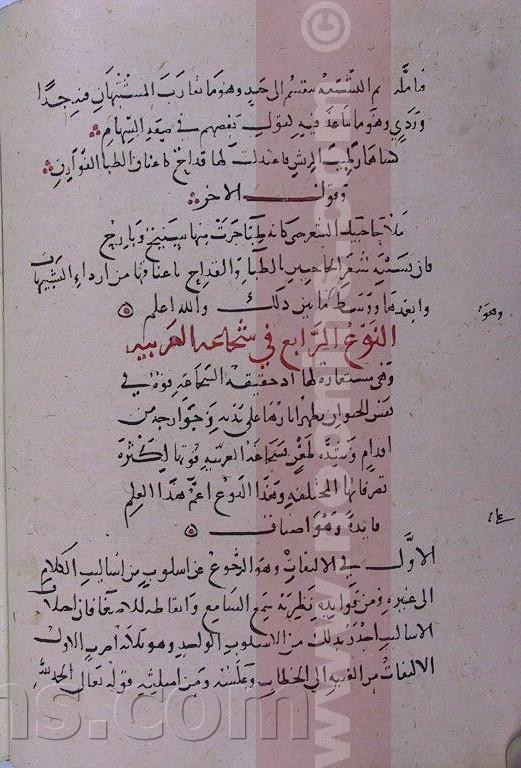 فأمله ثم التشبيه ينقسم الى جيد وهو ما تقارب المشبهان فيه جدا
وردي وهو ما تباعد فيه كقول بعضهم في صفة السهام
كساها رطيب الريش فاعتدلت لها قداح كاعناق الظبا الفوارق
وقول الاخر
ملا حاجبيك الشعر حتى كانه ظبا جرت منها سنيح وبارح
فان تشبيه شعر الحاجبين بالظبا والقداح باعناقها من اردا التشبيهات
وابعدها ووسط ما بين ذلك والله اعلم
وهو
النوع الرابع في شجاعة العربية
وهي مستعارة لها اذ حقيقة الشجاعة قوة في
نفس الحيوان يظهر اثارها على بدنه وجوارحه من
اقدام وشدة شجاعة العربية قوتها لكثرة
تصرفاتها المختلفة وهذا النوع اعم هذا العلم
فايدة وهو اصناف
الاول في الالتفات وهو الرجوع عن اسلوب من اساليب الكلام
الى غيره ومن فوايده تطرية سمع السامع وايقاظه للاصغا فان اختلاف
الاساليب اجدر بذلك من الاسلوب الواحد وهو ثلاثة اضرب الاول
الالتفات من الغيبة الى الخطاب وعكسه ومن امثلته قوله تعالى الحمد لله
©
www.
ns.com